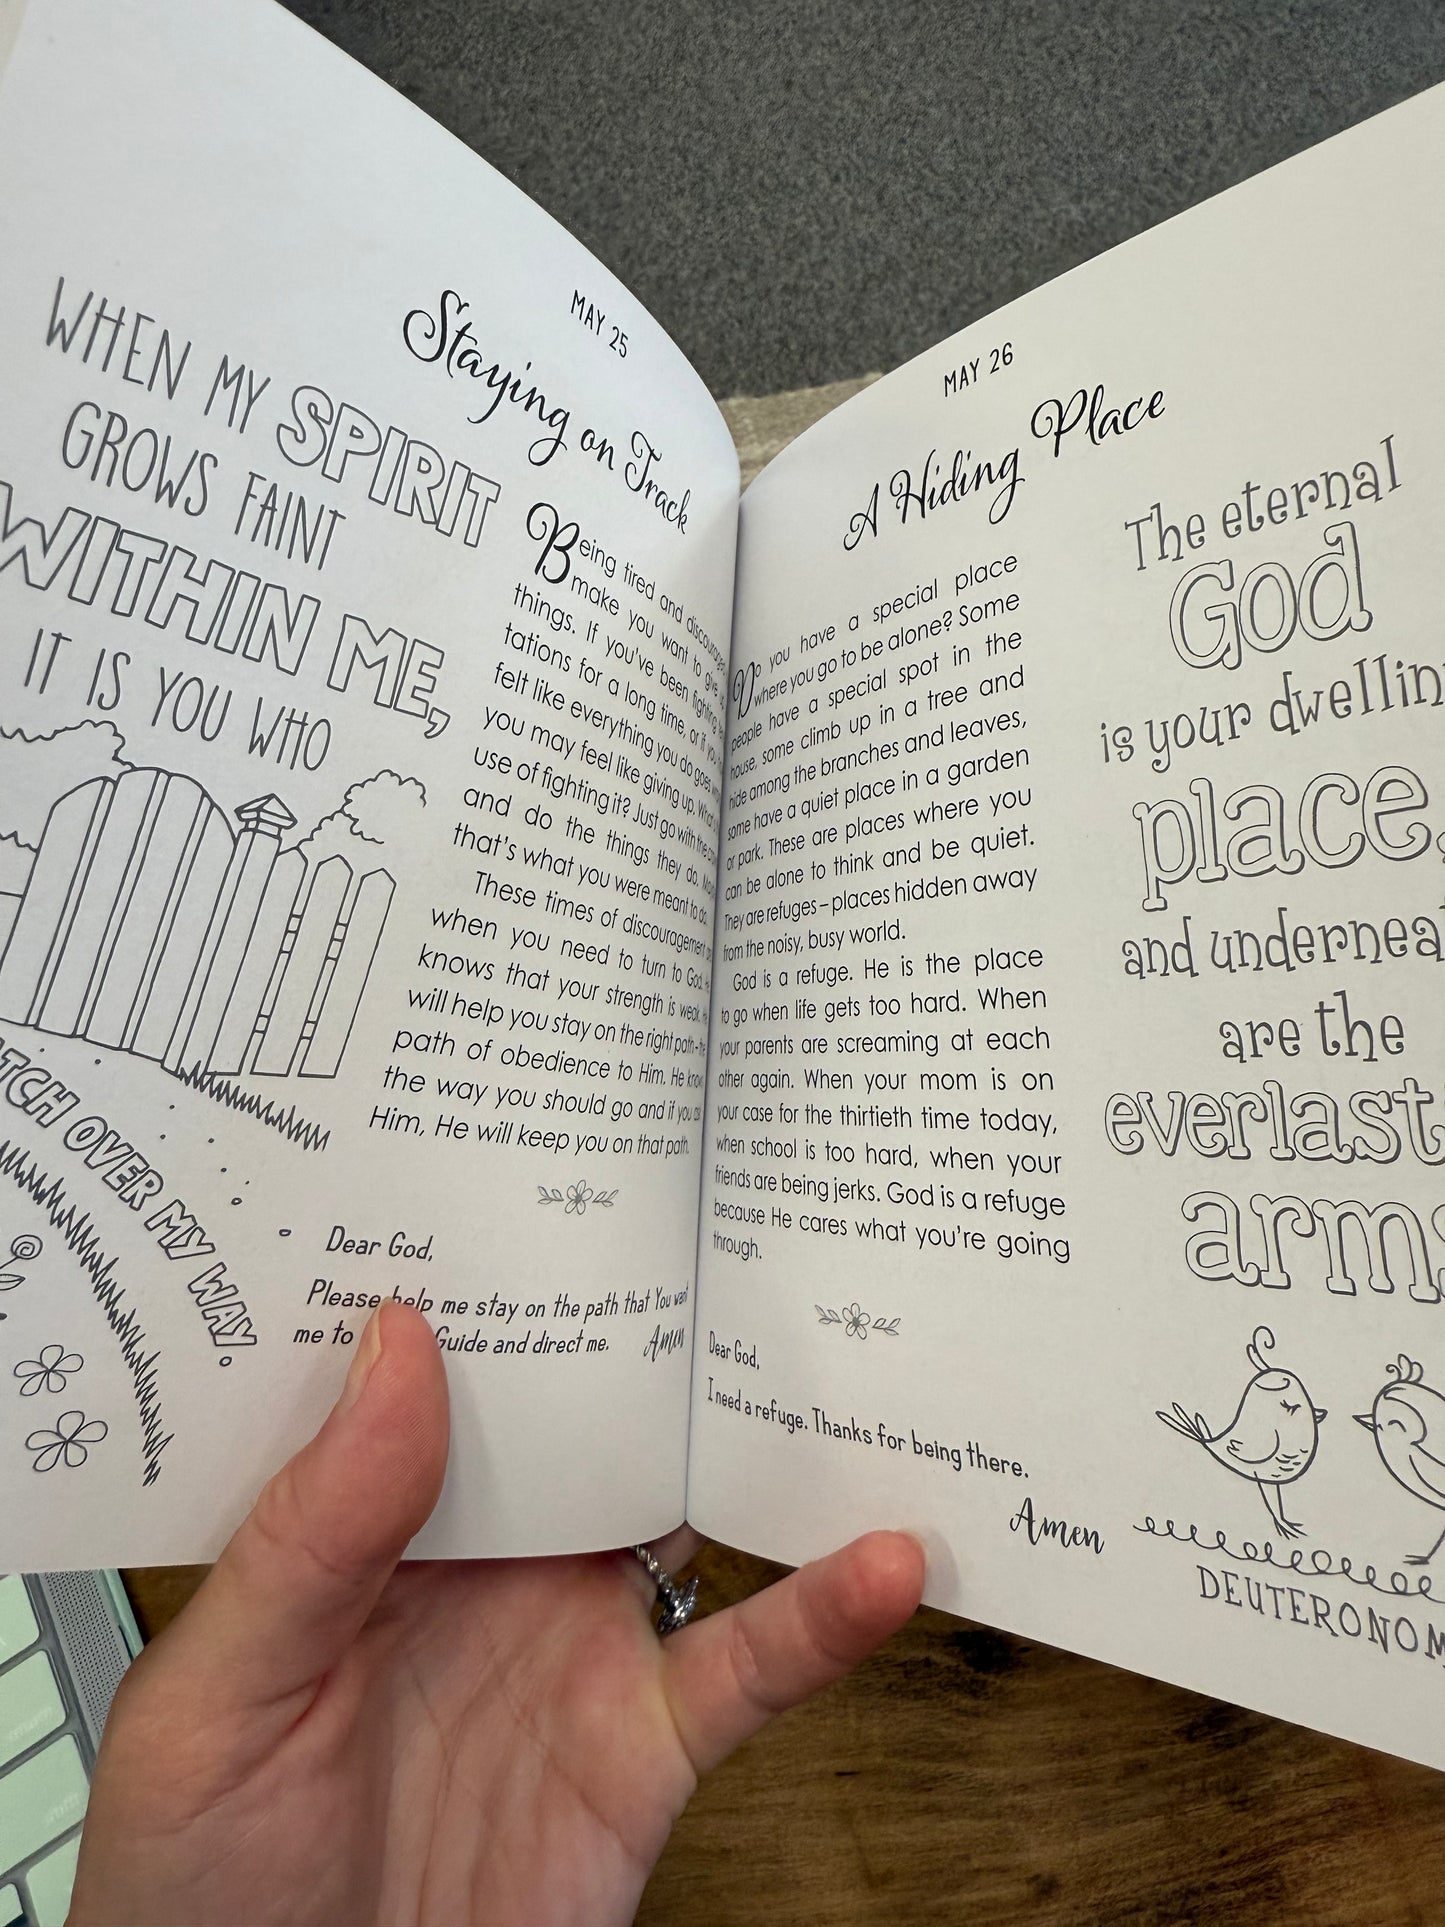 WHEN MY SPIRIT
GROWS FAINT
WITHIN ME,
IT IS YOU WHO
OVER MY WAY.
MAY 25
Staying on Track
Being tired and
make you want to give
things. If you've been fighting
tations for a long time, or if
felt like everything you do goes
you may feel like giving up.
use of fighting it? Just go with the
and do the things they do.
that's what you were meant to do.
These times of discouragement
when you need to turn to God.
knows that your strength is weak.
will help you stay on the right path–
path of obedience to Him. He
the way you should go and if you
Him, He will keep you on that path.
Dear God,
Please help me stay on the path that You want
me to Guide and direct me.
Amen
MAY 26
A Hiding Place
Do you have a special place
where you go to be alone? Some
people have a special spot in the
house, some climb up in a tree and
hide among the branches and leaves,
some have a quiet place in a garden
or park. These are places where you
can be alone to think and be quiet.
They are refuges – places hidden away
from the noisy, busy world.
God is a refuge. He is the place
to go when life gets too hard. When
your parents are screaming at each
other again. When your mom is on
your case for the thirtieth time today,
when school is too hard, when your
friends are being jerks. God is a refuge
because He cares what you're going
through.
Dear God,
I need a refuge. Thanks for being there.
Amen
The eternal
God
is your
place,
and
are the
DEUTERONOM